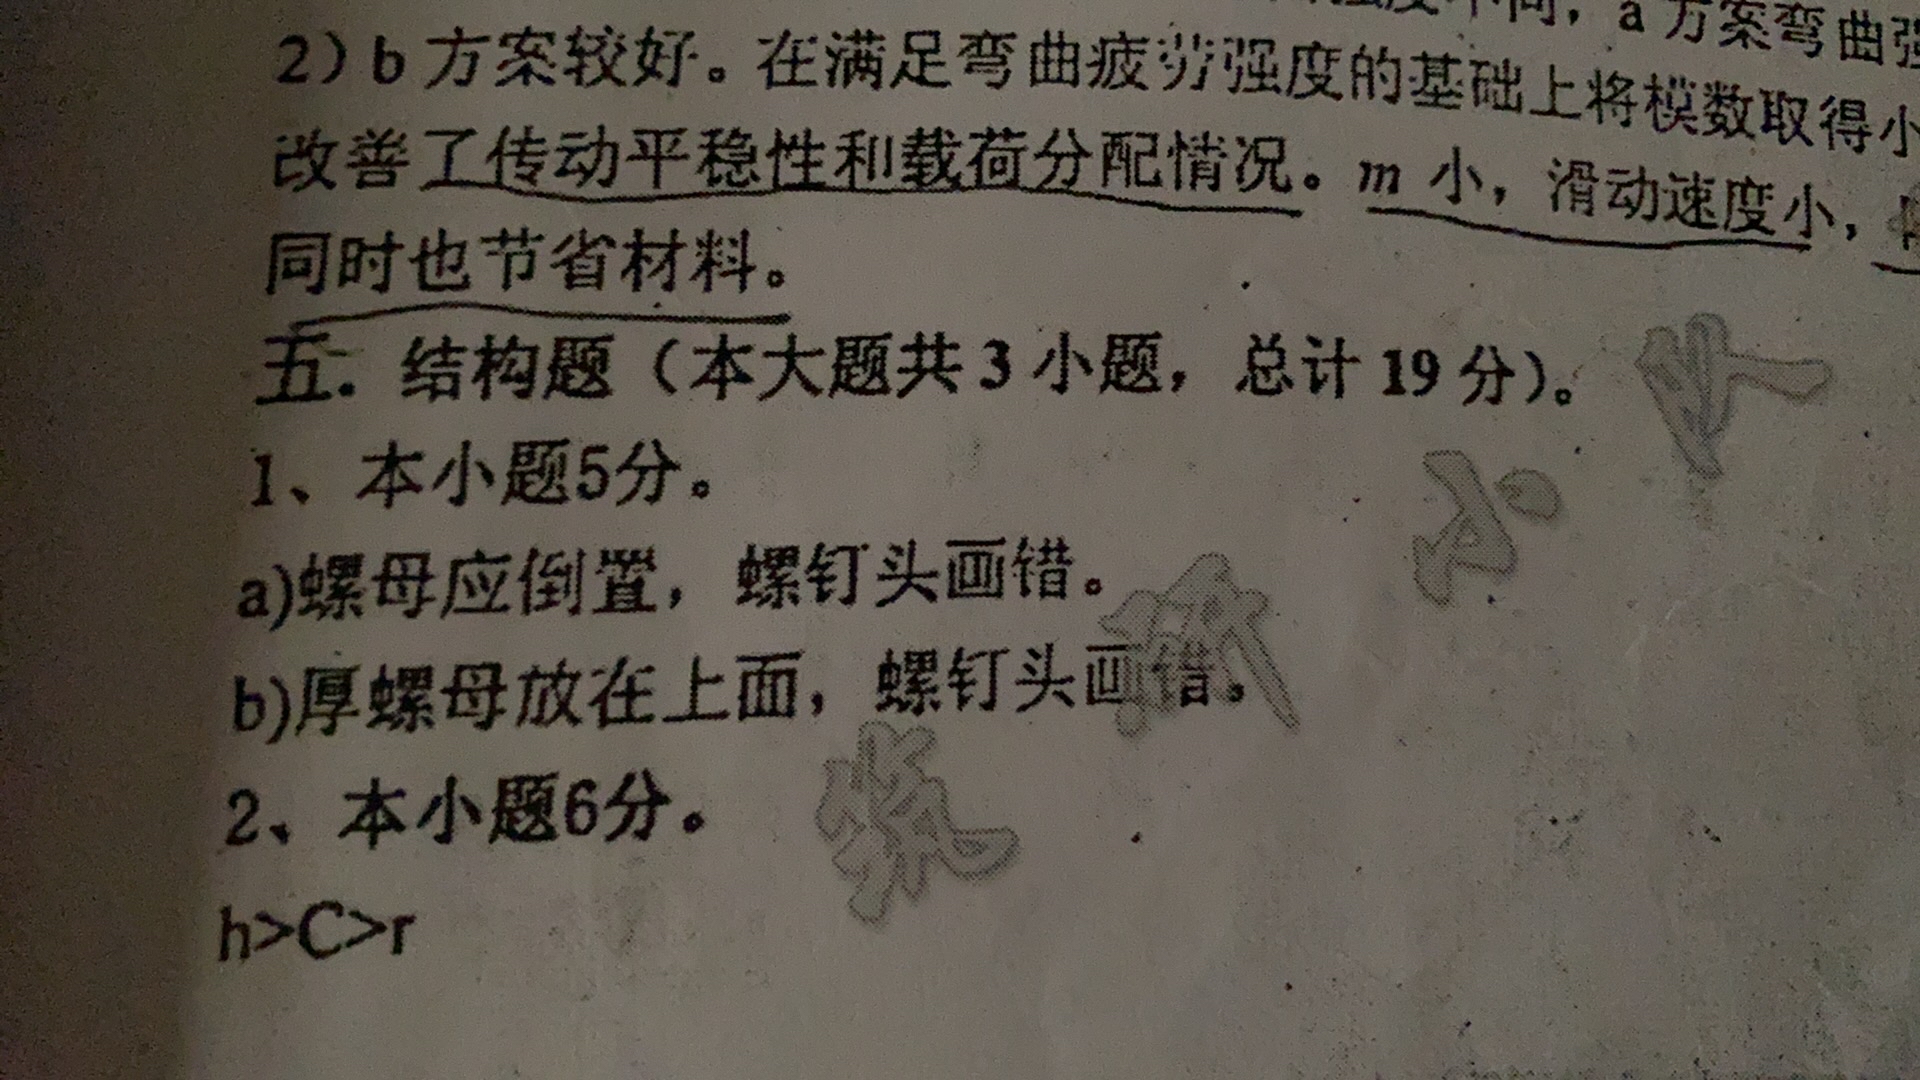 a方案弯曲强
2）b 方案较好。在满足弯曲疲劳强度的基础上将模数取得小
改善了传动平稳性和载荷分配情况。m 小，滑动速度小，
同时也节省材料。
五．结构题（本大题共 3 小题，总计 19 分）。
1、本小题5分。
a)螺母应倒置，螺钉头画错。
b)厚螺母放在上面，螺钉头画错。
2、本小题6分。
h>C>r